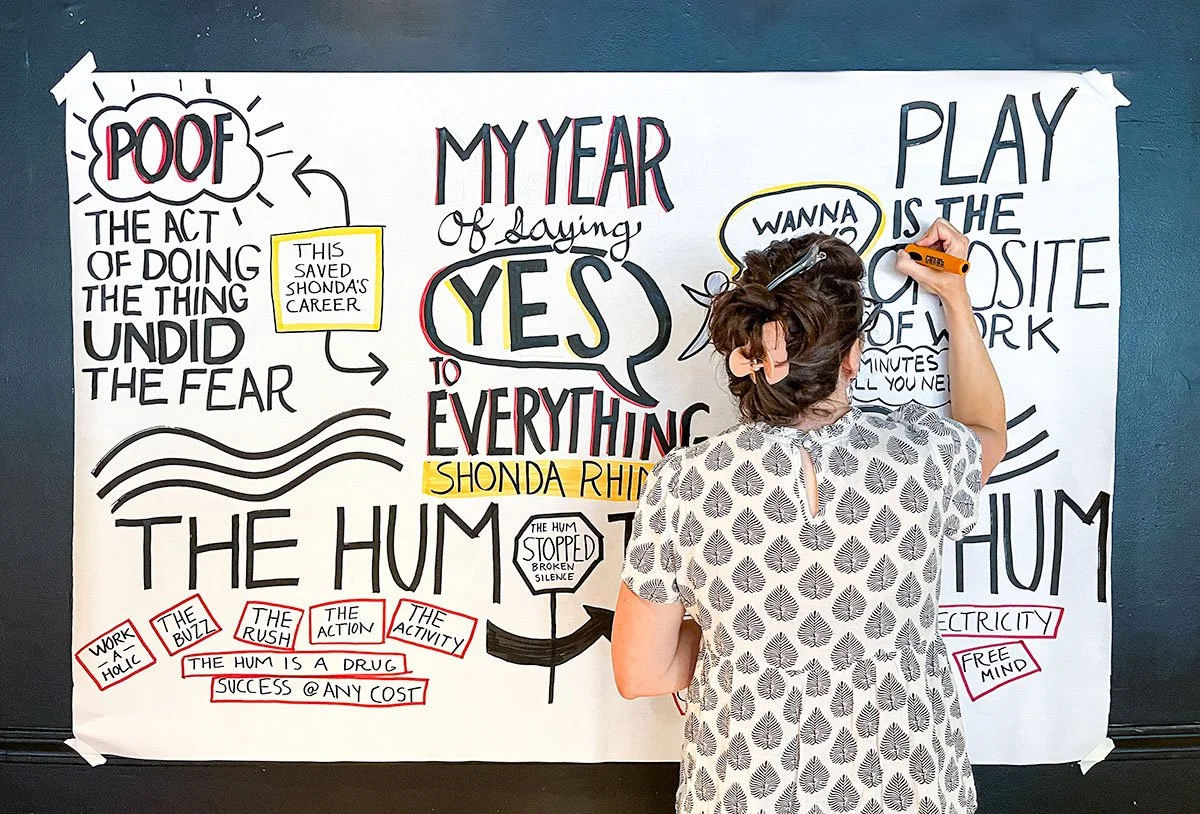 POOF
THE ACT
OF DOING
THE THING
UNDID
THE FEAR
THIS
SAVED
SHONDA'S
CAREER
MY YEAR
Of Saying
YES
TO
EVERYTHING
SHONDA
WANNA
PLAY
IS THE
OF WORK
MINUTES
YOU
THE HUM
THE HUM
STOPPED
BROKEN
SILENCE
HUM
WORK
-A-
HOLIC
THE
BUZZ
THE
RUSH
THE
ACTION
THE
ACTIVITY
THE HUM IS A DRUG
SUCCESS @ ANY COST
FREE
MIND